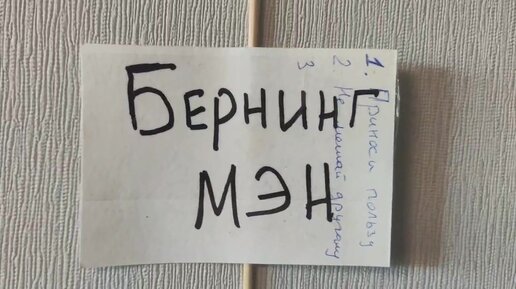 БЕРНИНГ
МЭН
1. Приноси пользу
2 Не мешай другому
3